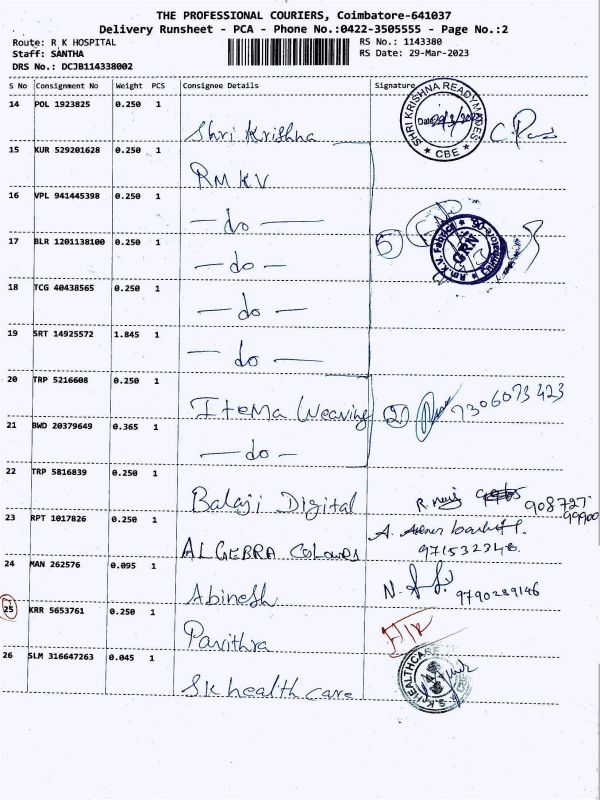 THE PROFESSIONAL COURIERS, Coimbatore-641037
Delivery Runsheet - PCA - Phone No.:0422-3505555 - Page No.:2
Route: R K HOSPITAL
RS No.: 1143380
Staff: SANTHA
RS Date: 29-Mar-2023
DRS No.: DCJB114338002
S No Consignment No Weight PCS Consignee Details Signature
14 POL 1923825 0.250 1
Shri Krishna
SHRI KRISHNA READYMADES
★ CBE ★
15 KUR 529201628 0.250 1
RMKV
16 VPL 941445398 0.250 1
— do —
17 BLR 1201138100 0.250 1
— do —
5
GRN
18 TCG 40438565 0.250 1
— do —
19 SRT 14925572 1.845 1
— do —
20 TRP 5216608 0.250 1
Itema Weaving
2
7306073423
21 BWD 20379649 0.365 1
— do —
22 TRP 5816839 0.250 1
Balaji Digital
23 RPT 1017826 0.250 1
ALGEBRA COLOURS
24 MAN 262576 0.095 1
Abinesh
9790289146
25 KRR 5653761 0.250 1
Pavithra
26 SLM 316647263 0.045 1
SK health care